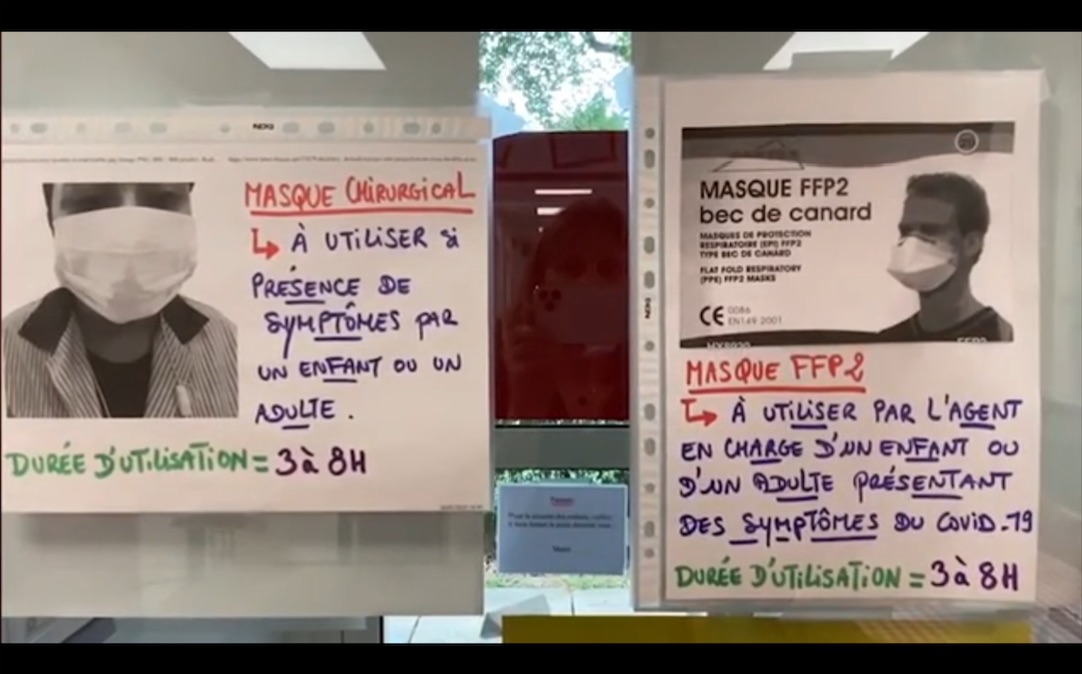 MASQUE CHIRURGICAL
À UTILISER Si
PRÉSENCE DE
SYMPTÔMES PAR
UN ENFANT OU UN
ADULTE.
DURÉE D'UTILISATION = 3 à 8H
MASQUE FFP2
bec de canard
MASQUES DE PROTECTION
RESPIRATOIRE (EPI) FFP2
TYPE BEC DE CANARD
FLAT FOLD RESPIRATORY
(PPE) FFP2 MASKS
CE 0086
EN149 2001
MASQUE FFP2
À UTILISER PAR L'AGENT
EN CHARGE D'UN ENFANT OU
D'UN ADULTE PRÉSENTANT
DES SYMPTÔMES DU COVID-19
DURÉE D'UTILISATION = 3 à 8H
Merci